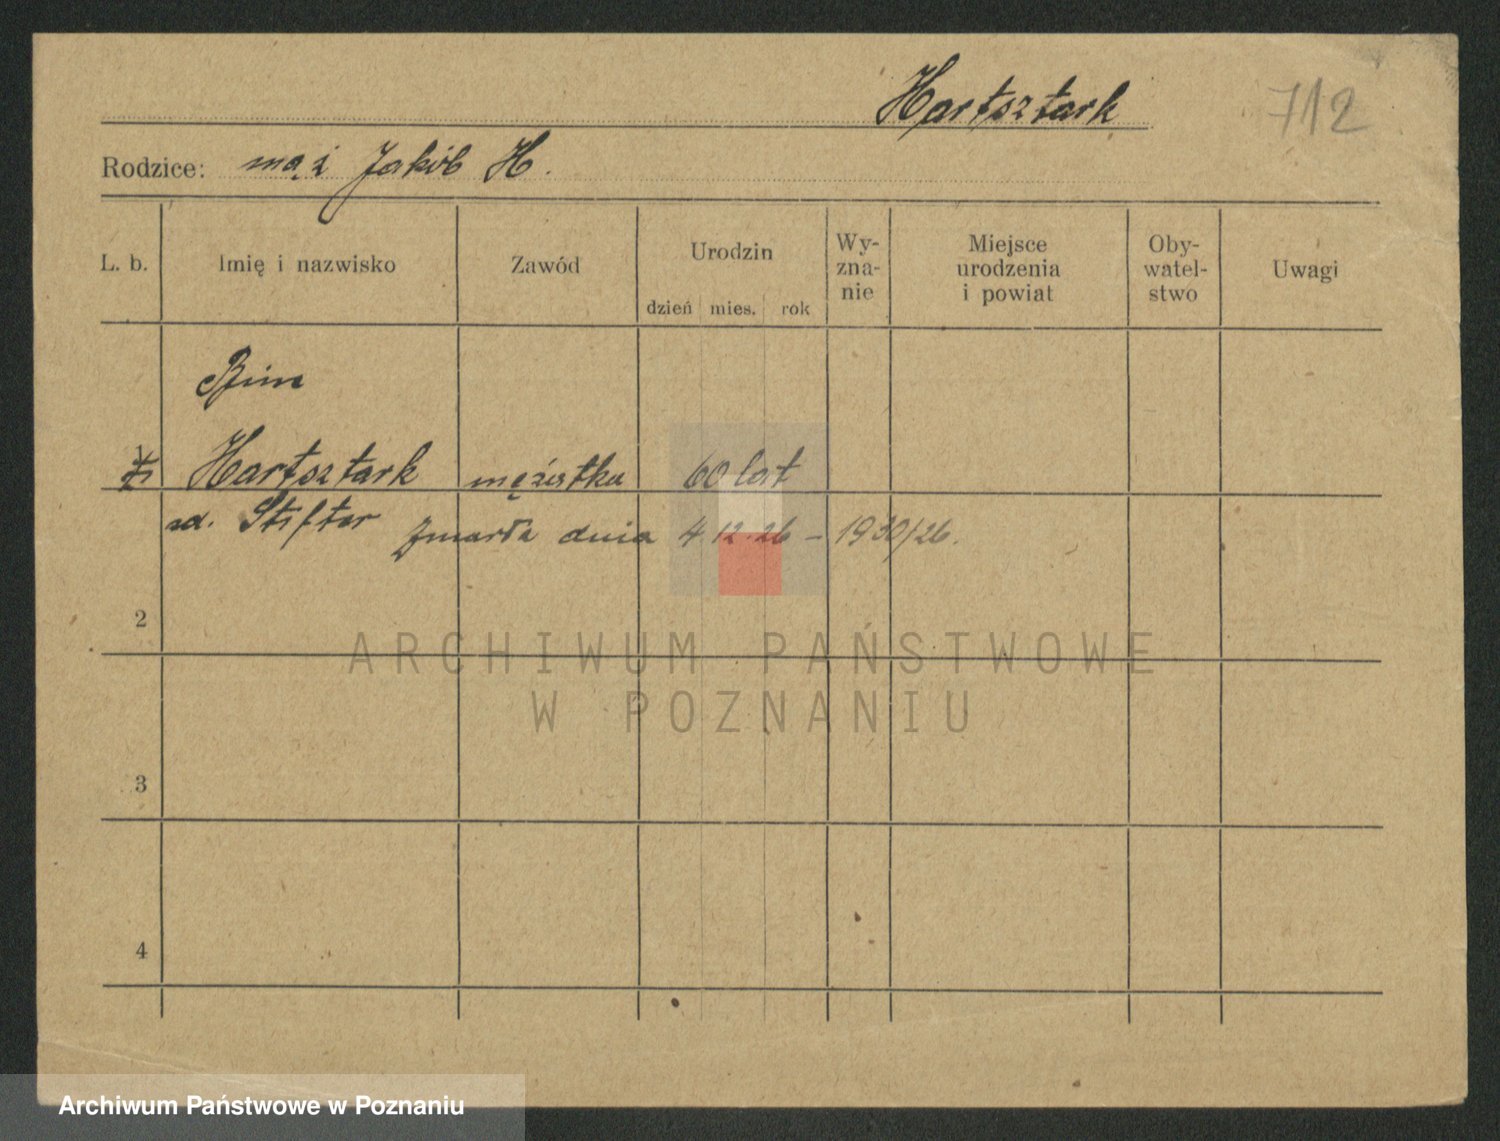 Hartsztark
712
Rodzice: mąż Jakób H.
L. b. Imię i nazwisko Zawód Urodzin dzień mies. rok Wy-zna-nie Miejsce urodzenia i powiat Oby-watel-stwo Uwagi
1 Hartsztark mężatka 60 lat
zd. Stifter zmarła dnia 4.12.26 – 1930/26.
2
ARCHIWUM PAŃSTWOWE
W POZNANIU
3
4
Archiwum Państwowe w Poznaniu